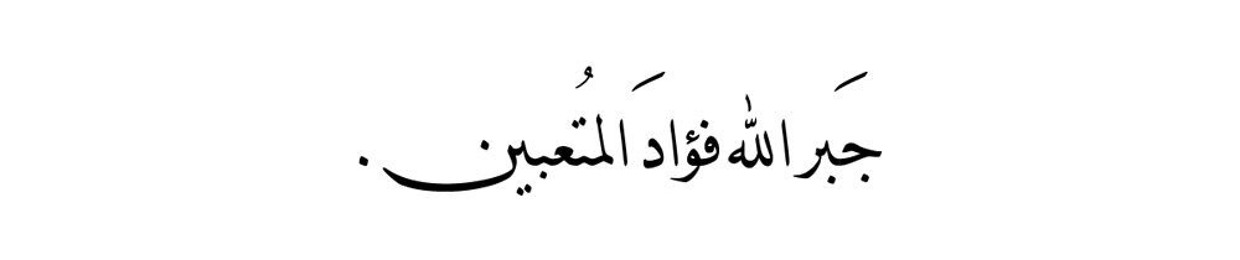 جَبر الله فؤادَ المتُعبين .